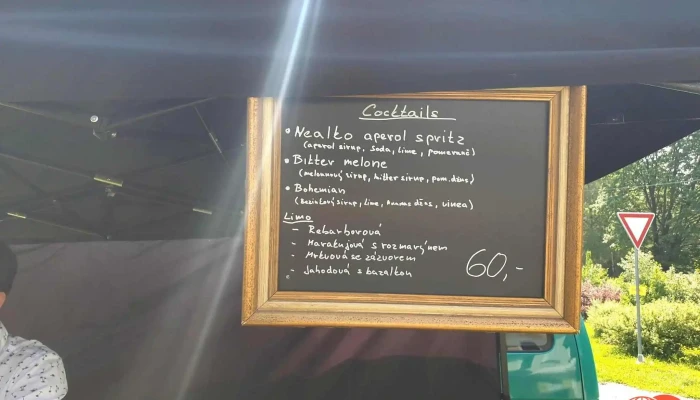 Cocktails
• Nealko aperol spritz
(aperol sirup, soda, lime, pomeranč)
• Bitter melone
(melounový sirup, bitter sirup, pom. džus)
• Bohemian
(Bezinkový sirup, lime, Ananas džus, vinea)
Limo
- Rebarborová
- Maracujová s rozmarýnem
- Mrkvová se zázvorem
- Jahodová s bazalkou
60,-